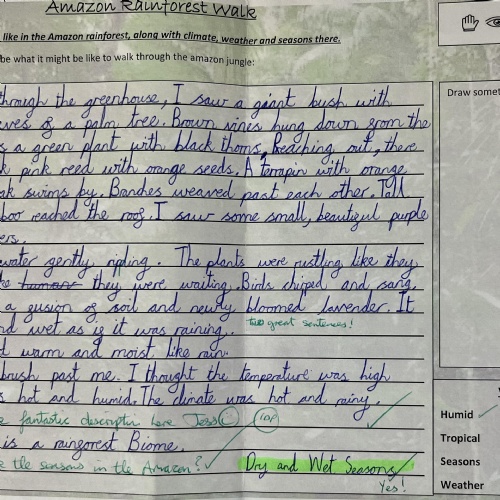 Amazon Rainforest Walk
like in the Amazon rainforest, along with climate, weather and seasons there.
be what it might be like to walk through the amazon jungle:
Draw somet
through the greenhouse, I saw a giant bush with
ves of a palm tree. Brown vines hung down from the
s a green plant with black thorns, Reaching out, there
k pink reed with orange seeds. A terrapin with orange
ak swims by. Branches weaved past each other. Tall
boo reached the roof. I saw some small, beautiful purple
ers.
water gently ripling. The plants were rustling like they
they were waiting. Birds chirped and sang
a fusion of soil and newly bloomed lavender. It
nd wet as if it was raining.
two great sentences!
d warm and moist like rain.
brush past me. I thought the temperature was high
s hot and humid. The climate was hot and rainy.
e fantastic description here Jess
1DP
is a rainforest Biome.
e the seasons in the Amazon?
Dry and Wet Seasons
Yes!
Humid
Tropical
Seasons
Weather